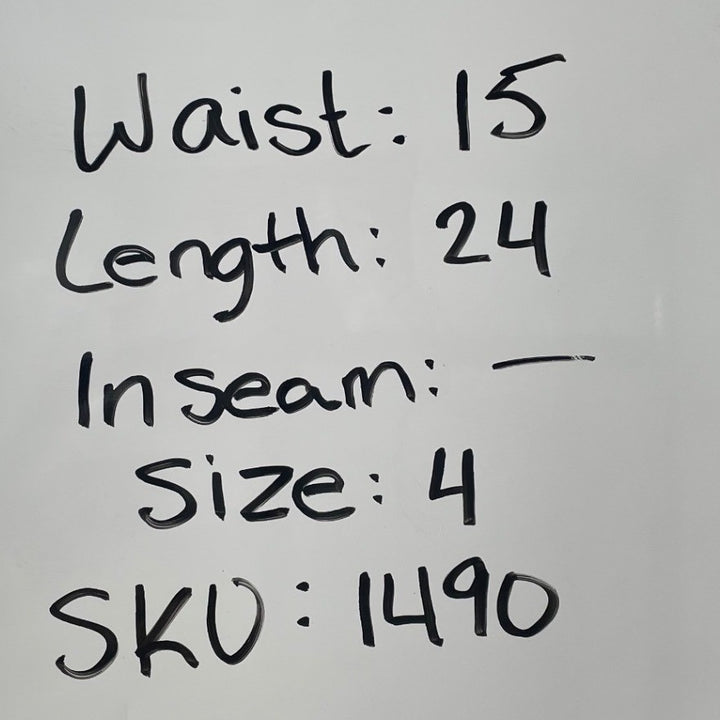 Waist: 15
Length: 24
Inseam: —
Size: 4
SKU: 1490